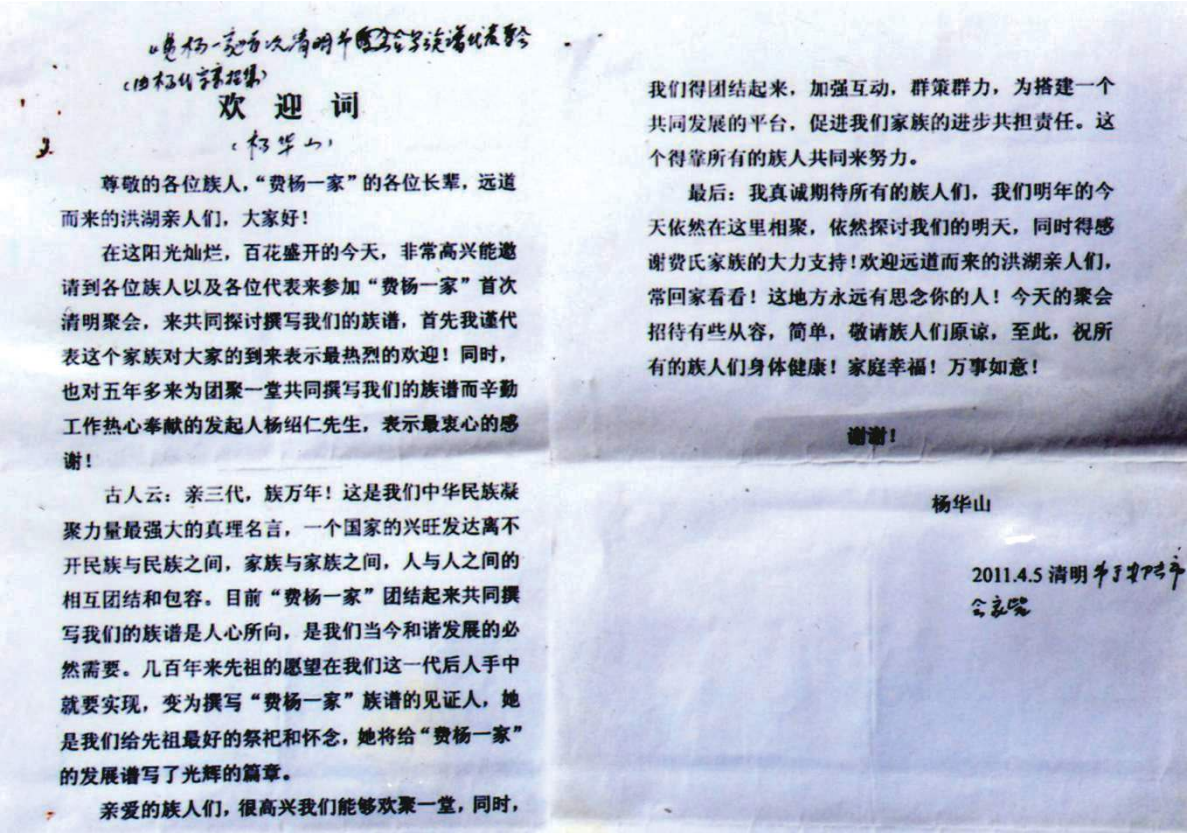 欢迎词
（杨华山）
尊敬的各位族人，“费杨一家”的各位长辈，远道
而来的洪湖亲人们，大家好！
在这阳光灿烂，百花盛开的今天，非常高兴能邀
请到各位族人以及各位代表来参加“费杨一家”首次
清明聚会，来共同探讨撰写我们的族谱，首先我谨代
表这个家族对大家的到来表示最热烈的欢迎！同时，
也对五年多来为团聚一堂共同撰写我们的族谱而辛勤
工作热心奉献的发起人杨绍仁先生，表示最衷心的感
谢！
古人云：亲三代，族万年！这是我们中华民族凝
聚力量最强大的真理名言，一个国家的兴旺发达离不
开民族与民族之间，家族与家族之间，人与人之间的
相互团结和包容。目前“费杨一家”团结起来共同撰
写我们的族谱是人心所向，是我们当今和谐发展的必
然需要。几百年来先祖的愿望在我们这一代后人手中
就要实现，变为撰写“费杨一家”族谱的见证人，她
是我们给先祖最好的祭祀和怀念，她将给“费杨一家”
的发展谱写了光辉的篇章。
亲爱的族人们，很高兴我们能够欢聚一堂，同时，
我们得团结起来，加强互动，群策群力，为搭建一个
共同发展的平台，促进我们家族的进步共担责任。这
个得靠所有的族人共同来努力。
最后：我真诚期待所有的族人们，我们明年的今
天依然在这里相聚，依然探讨我们的明天，同时得感
谢费氏家族的大力支持！欢迎远道而来的洪湖亲人们，
常回家看看！这地方永远有思念你的人！今天的聚会
招待有些从容，简单，敬请族人们原谅，至此，祝所
有的族人们身体健康！家庭幸福！万事如意！
谢谢！
杨华山
2011.4.5 清明